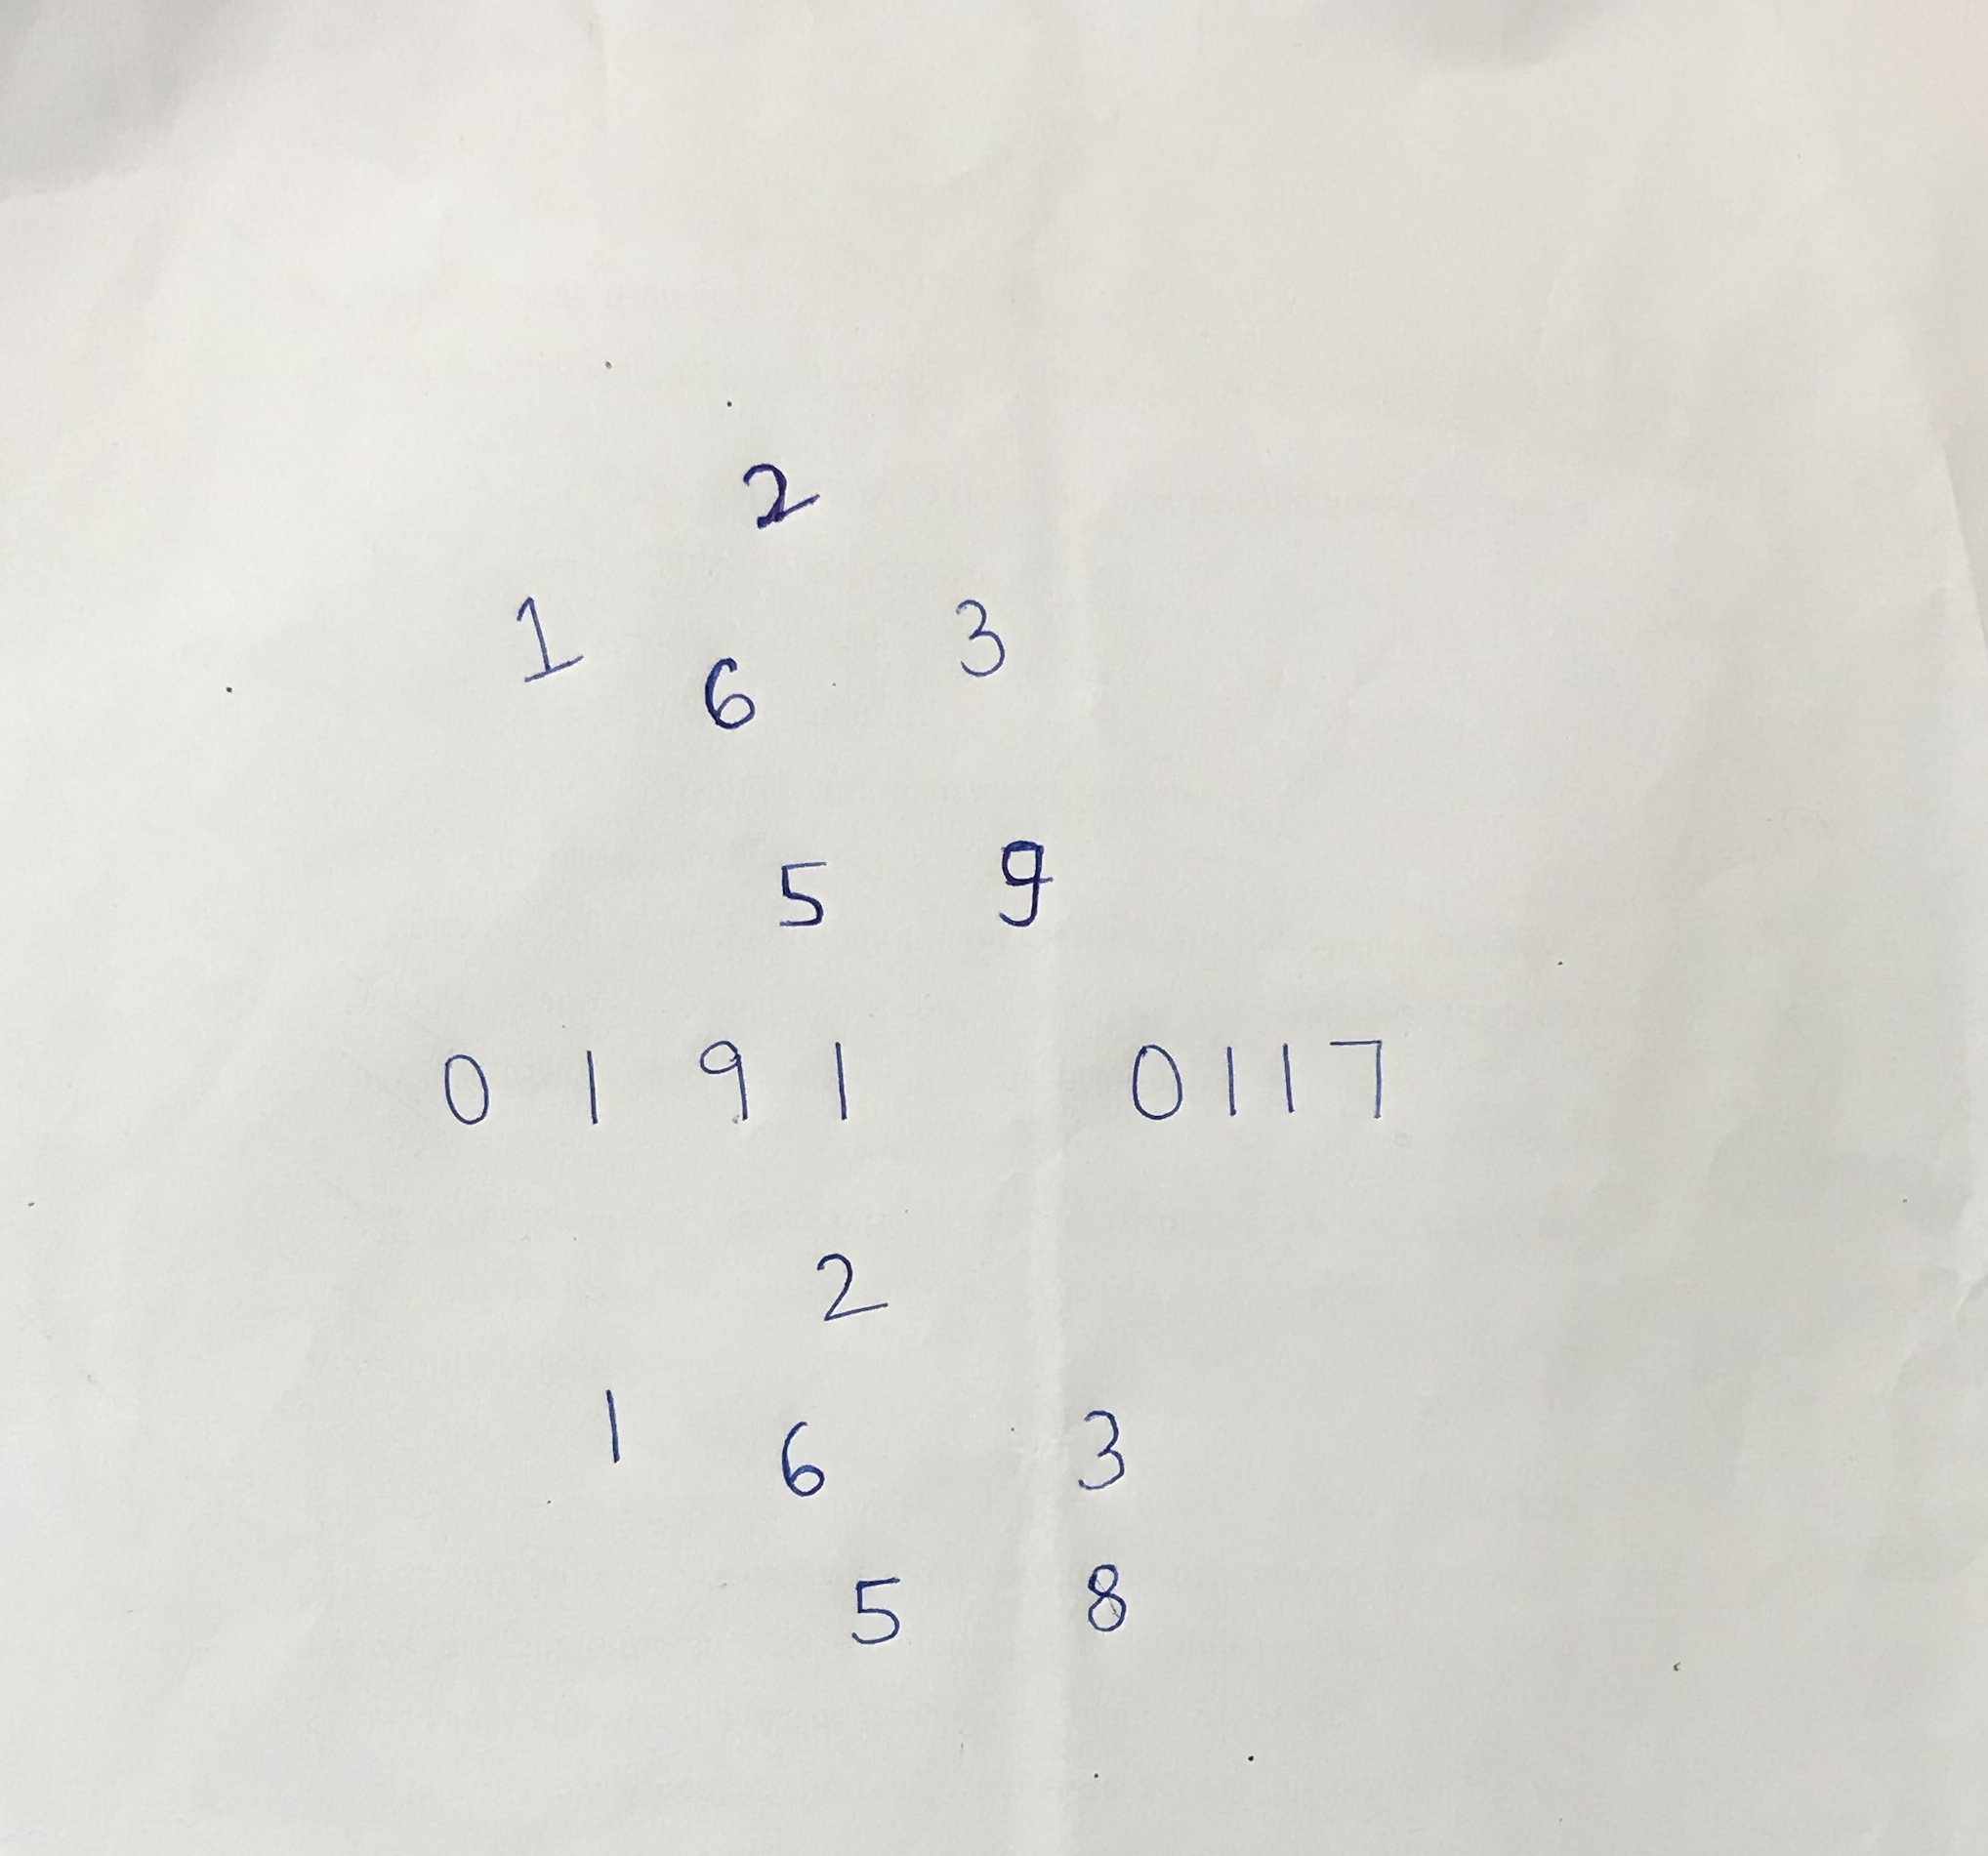 2
1 6 3
5 9
0 1 9 1 0117
2
1 6 3
5 8